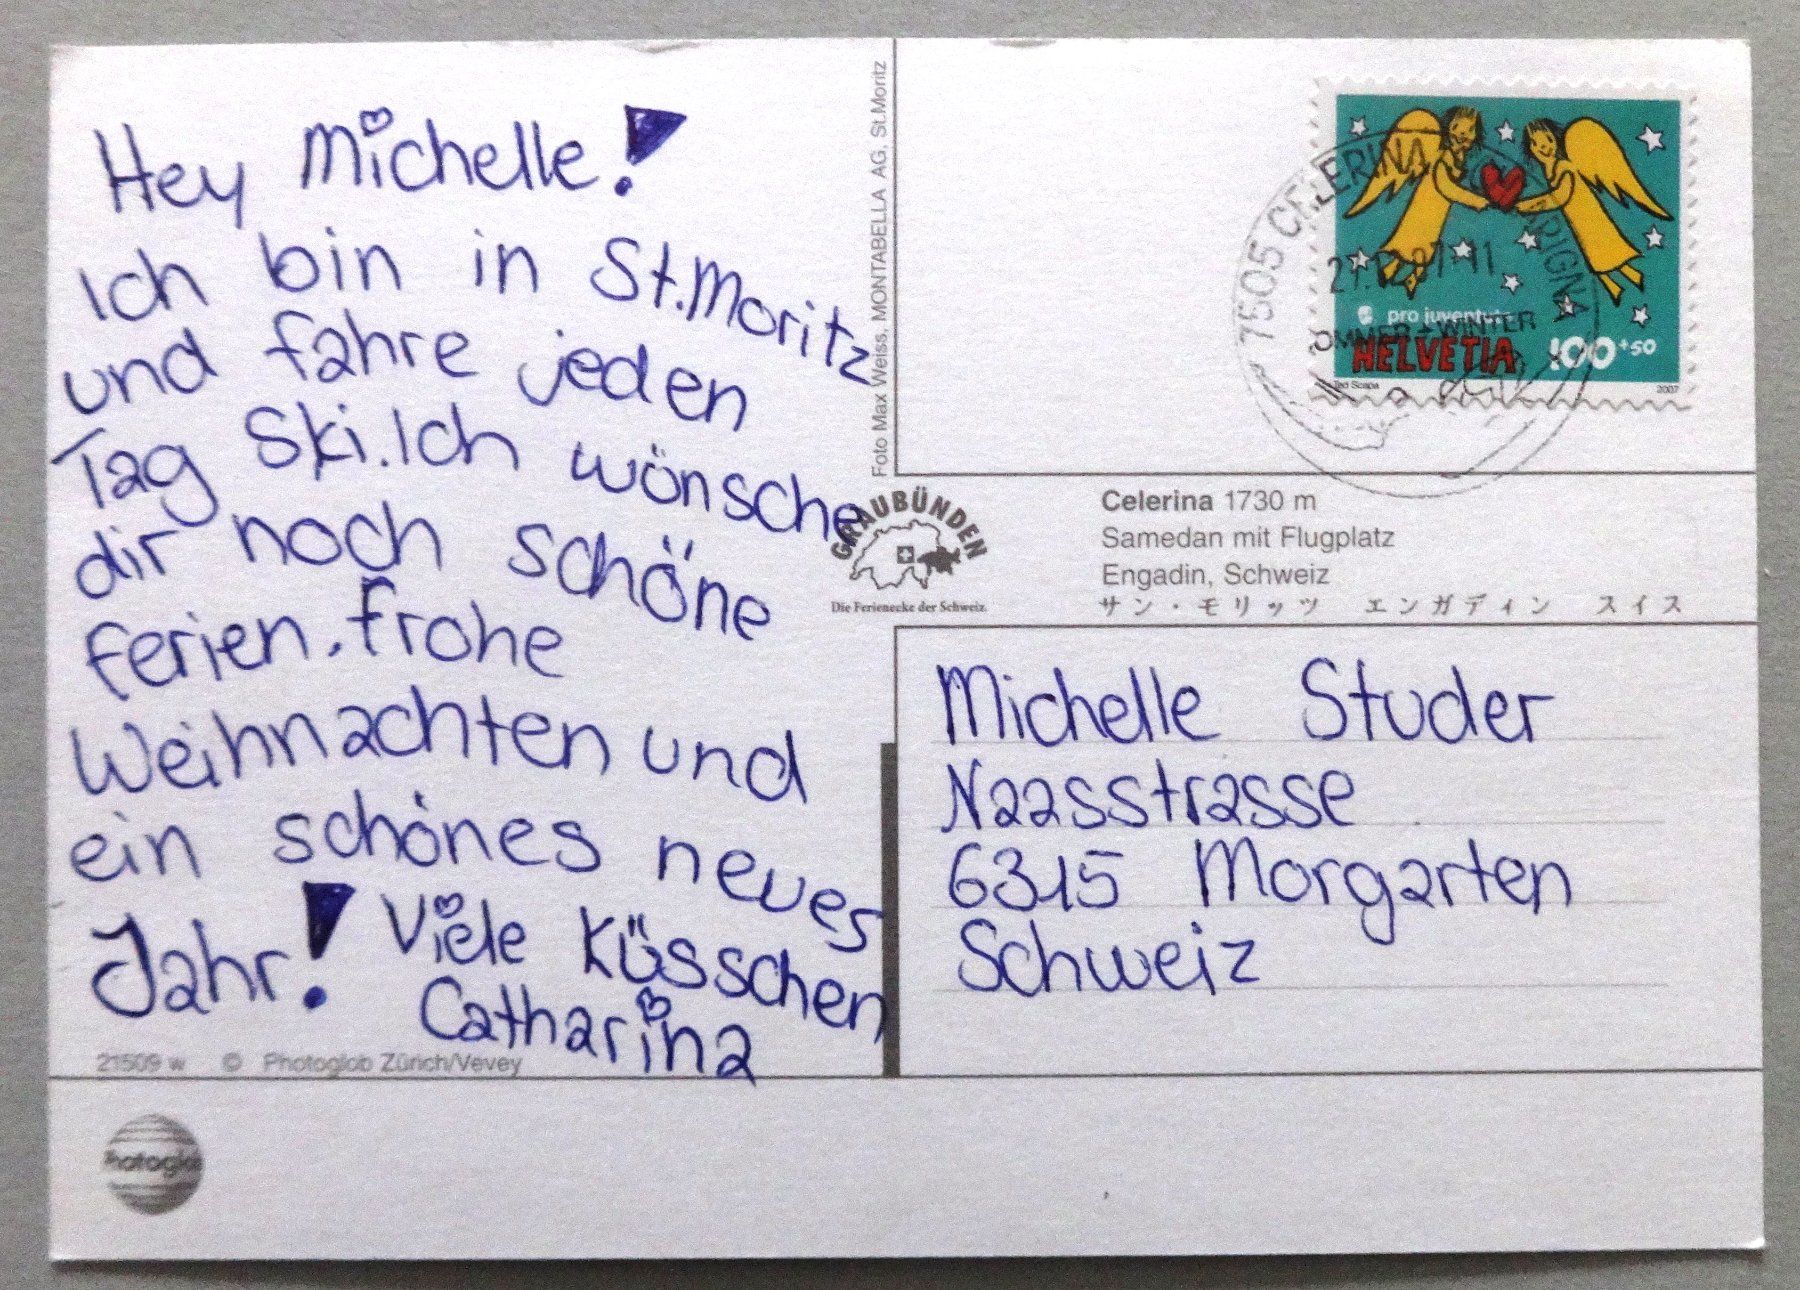 Hey Michelle!
Ich bin in St. Moritz
und fahre jeden
Tag Ski. Ich wönsche
dir noch schöne
ferien. frohe
Weihnachten und
ein schönes neues
Jahr! Viele Küsschen
Catharina
21509 w © Photoglob Zürich/Vevey
Photoglob
Foto Max Weiss, MONTABELLA AG, St. Moritz
GRAUBÜNDEN
Die Ferienecke der Schweiz.
7505 CELERINA
SOMMER + WINTER
pro juventute
HELVETIA 100+50
Ted Scapa 2007
Celerina 1730 m
Samedan mit Flugplatz
Engadin, Schweiz
サン・モリッツ エンガディン スイス
Michelle Studer
Naasstrasse
6315 Morgarten
Schweiz